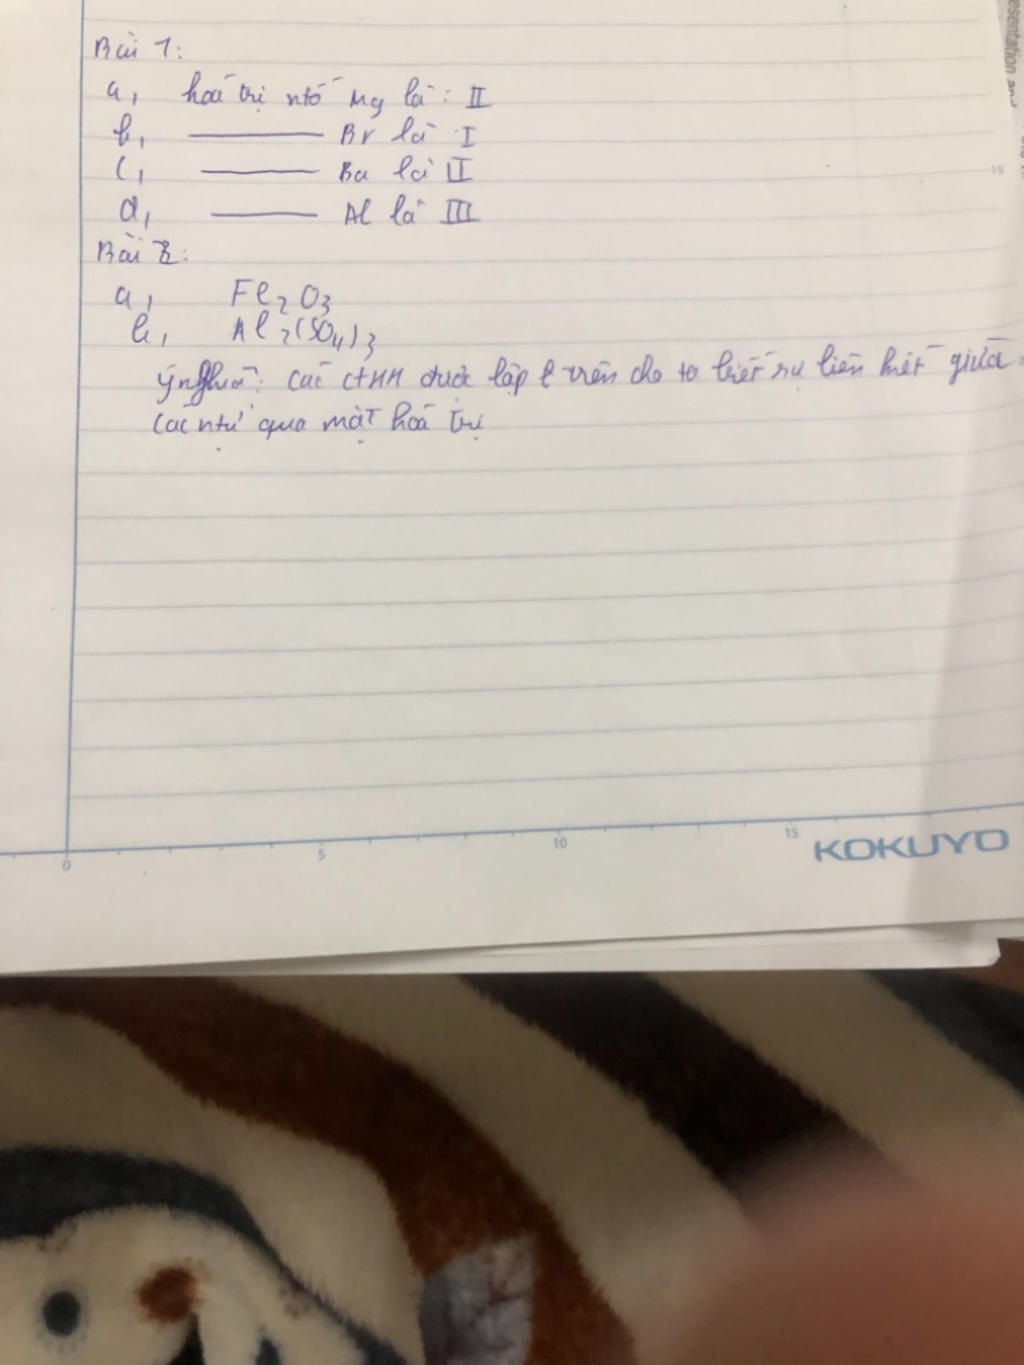 Bài 1:
a, hoá trị ntố Mg là: II
b, ——— Br là I
c, ——— Ba là II
d, ——— Al là III
Bài 2:
a, Fe₂O₃
b, Al₂(SO₄)₃
ý nghĩa: các CTHH được lập ở trên cho ta biết sự liên kết giữa
các ntử qua mặt hoá trị
0 5 10 15
KOKUYO
15
esentation and